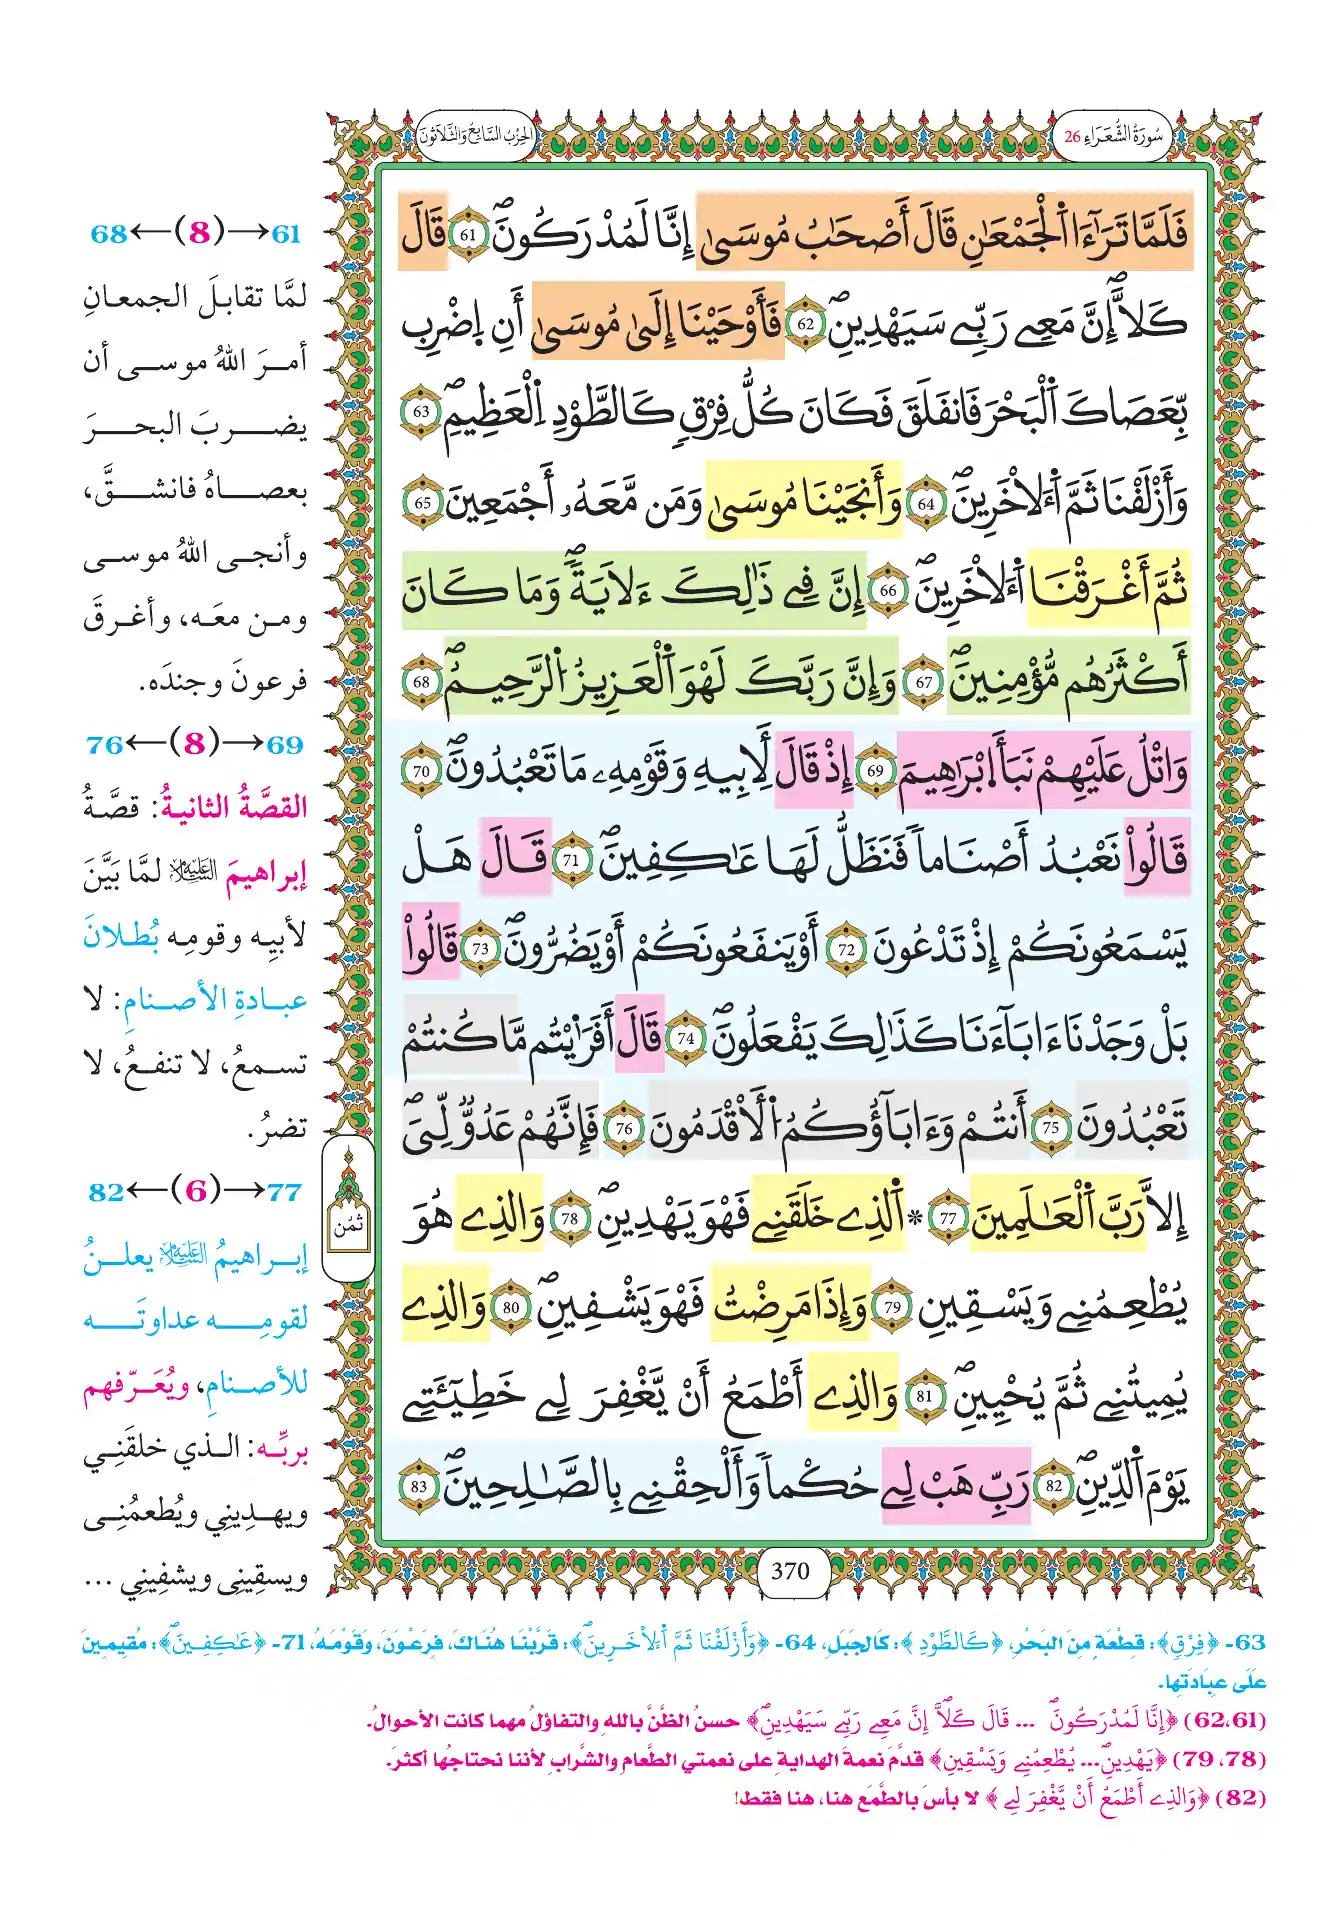 سُورَةُ الشُّعَرَاءِ 26
الحِزْبُ السَّابِعُ وَالثَّلَاثُونَ
فَلَمَّا تَرَٰٓءَا اَ۬لْجَمْعَٰنِ قَالَ أَصْحَٰبُ مُوس۪ىٰٓ إِنَّا لَمُدْرَكُونَۖ 61 قَالَ
كَلَّآۖ إِنَّ مَعِے رَبِّے سَيَهْدِينِۖ 62 فَأَوْحَيْنَآ إِلَىٰ مُوس۪ىٰٓ أَنِ اِ۪ضْرِب
بِّعَصَاكَ اَ۬لْبَحْرَ فَانفَلَقَ فَكَانَ كُلُّ فِرْقٖ كَالطَّوْدِ اِ۬لْعَظِيمِۖ 63
وَأَزْلَفْنَا ثَمَّ اَ۬لَاخَرِينَۖ 64 وَأَنجَيْنَا مُوس۪ىٰ وَمَن مَّعَهُۥٓ أَجْمَعِينَ 65
ثُمَّ أَغْرَقْنَا اَ۬لَاخَرِينَۖ 66 إِنَّ فِے ذَٰلِكَ ءَلَايَةٗۖ وَمَا كَانَ
أَكْثَرُهُم مُّؤْمِنِينَۖ 67 وَإِنَّ رَبَّكَ لَهُوَ اَ۬لْعَزِيزُ اُ۬لرَّحِيمُۖ 68
وَاتْلُ عَلَيْهِمْ نَبَأَ اِبْرَٰهِيمَ 69 إِذْ قَالَ لِأَبِيهِ وَقَوْمِهِۦ مَا تَعْبُدُونَۖ 70
قَالُواْ نَعْبُدُ أَصْنَاماٗ فَنَظَلُّ لَهَا عَٰكِفِينَۖ 71 قَالَ هَلْ
يَسْمَعُونَكُمْ إِذْ تَدْعُونَ 72 أَوْ يَنفَعُونَكُمْ أَوْ يَضُرُّونَۖ 73 قَالُواْ
بَلْ وَجَدْنَآ ءَابَآءَنَا كَذَٰلِكَ يَفْعَلُونَۖ 74 قَالَ أَفَرَٰيْتُم مَّا كُنتُمْ
تَعْبُدُونَ 75 أَنتُمْ وَءَابَآؤُكُمُ اُ۬لَاقْدَمُونَ 76 فَإِنَّهُمْ عَدُوّٞ لِّيَۖ
إِلَّا رَبَّ اَ۬لْعَٰلَمِينَ 77 * اَ۬لذِے خَلَقَنِے فَهُوَ يَهْدِينِۖ 78 وَالذِے هُوَ
يُطْعِمُنِے وَيَسْقِينِ 79 وَإِذَا مَرِضْتُ فَهُوَ يَشْفِينِۖ 80 وَالذِے
يُمِيتُنِے ثُمَّ يُحْيِينِۖ 81 وَالذِےٓ أَطْمَعُ أَنْ يَّغْفِرَ لِے خَطِيٓـَٔتِے
يَوْمَ اَ۬لدِّينِۖ 82 رَبِّ هَبْ لِے حُكْماٗ وَأَلْحِقْنِے بِالصَّٰلِحِينَۖ 83
ثُمُن
370
61→(8)←68
لمَّا تقابلَ الجمعانِ
أمرَ اللهُ موسى أن
يضربَ البحرَ
بعصاهُ فانشقَّ،
وأنجى اللهُ موسى
ومن معَه، وأغرقَ
فرعونَ وجندَه.
69→(8)←76
القصَّةُ الثانيةُ: قصَّةُ
إبراهيمَ عليه السلام لمَّا بَيَّنَ
لأبيِه وقومِه بُطلانَ
عبادةِ الأصنامِ: لا
تسمعُ، لا تنفعُ، لا
تضرُ.
77→(6)←82
إبراهيمُ عليه السلام يعلنُ
لقومِه عداوتَه
للأصنامِ، ويُعَرّفهم
بربِّه: الذي خلقَنِي
ويهدِينِي ويُطعمُنِى
ويسقِينِى ويشفِينِي ...
63- ﴿فِرْقٖ﴾: قطعَةٍ مِنَ البَحْرِ، ﴿كَالطَّوْدِ﴾: كَالجَبَلِ، 64- ﴿وَأَزْلَفْنَا ثَمَّ اَ۬لَاخَرِينَۖ﴾: قَرَّبْنَا هُنَاكَ، فِرْعَوْنَ، وَقَوْمَهُ، 71- ﴿عَٰكِفِينَۖ﴾: مُقِيمِينَ
عَلَى عِبَادَتِهَا.
(62،61) ﴿إِنَّا لَمُدْرَكُونَۖ ... قَالَ كَلَّآۖ إِنَّ مَعِے رَبِّے سَيَهْدِينِۖ﴾ حسنُ الظَّنِّ باللهِ والتفاؤلُ مهما كانت الأحوالُ.
(78، 79) ﴿يَهْدِينِۖ... يُطْعِمُنِے وَيَسْقِينِ﴾ قدَّمَ نعمةَ الهدايةِ على نعمتي الطَّعامِ والشَّرابِ لأننا نحتاجُها أكثرَ.
(82) ﴿وَالذِےٓ أَطْمَعُ أَنْ يَّغْفِرَ لِے﴾ لا بأسَ بالطَّمَعِ هنا، هنا فقط!